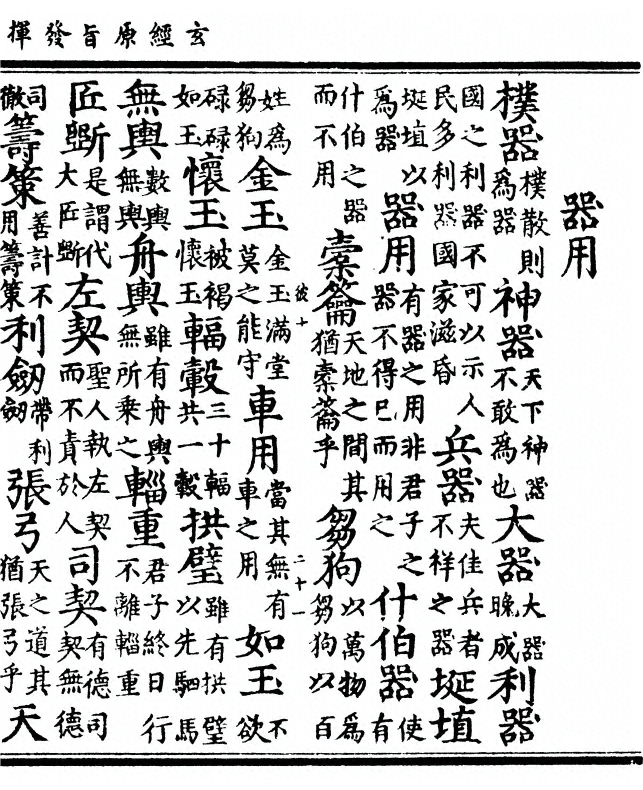 玄經原旨發揮
器用
樸器樸散則為器神器天下神器不敢為也大器大器晚成利器
國之利器不可以示人民多利器國家滋昏兵器夫佳兵者不祥之器埏埴
埏埴以為器器用有器之用非君子之器不得已而用之什伯器使有
什伯之器而不用橐籥天地之間其猶橐籥乎芻狗以萬物為芻狗以百
姓為芻狗金玉金玉滿堂莫之能守車用當其無有車之用如玉不欲
二十一
碌碌如玉懷玉被褐懷玉輻轂三十輻共一轂拱璧雖有拱璧以先駟馬
無輿數輿無輿舟輿雖有舟輿無所乘之輜重君子終日行不離輜重
匠斲是謂代大匠斲左契聖人執左契而不責於人司契有德司契無德
司徹籌策善計不用籌策利劒帶利劒張弓天之道其猶張弓乎天